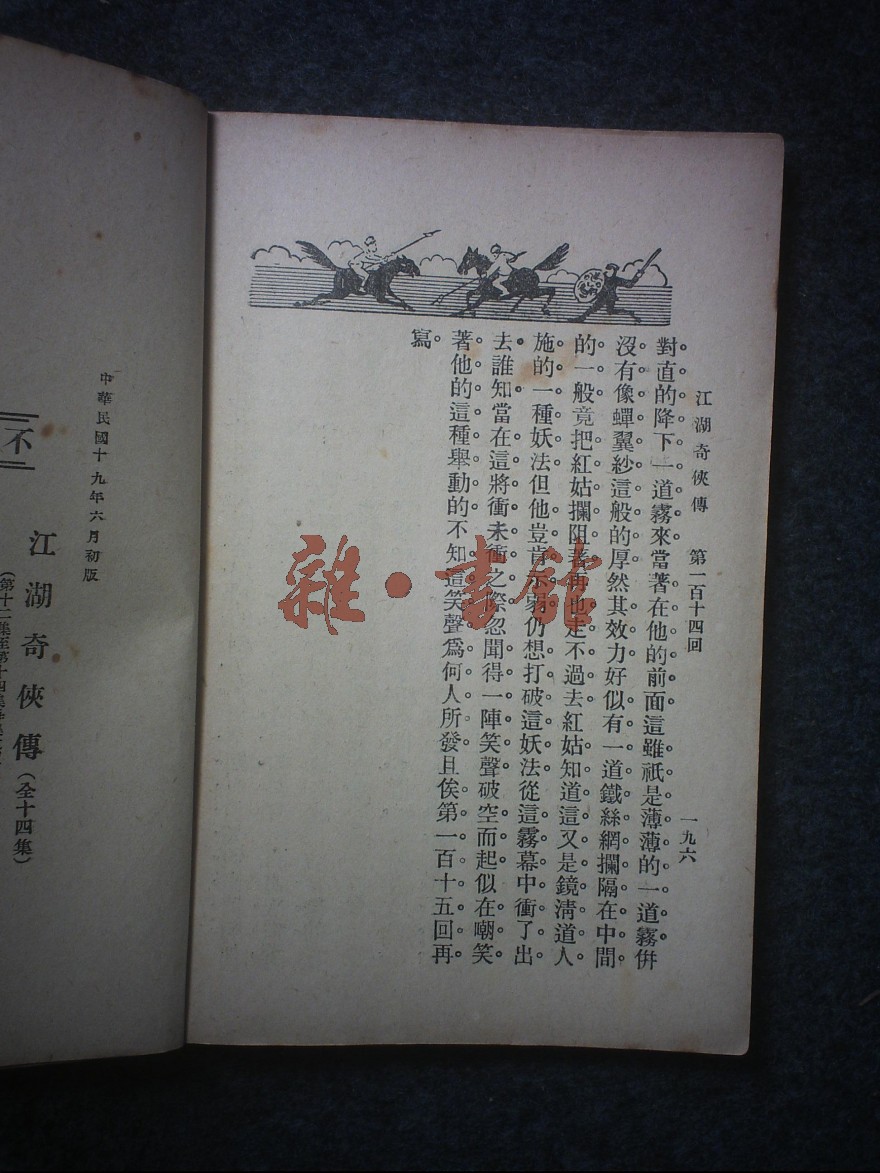 江湖奇俠傳 第一百十四回 一九六
對直的降下一道霧來當著在他的前面這雖祇是薄薄的一道霧倂
沒有像蟬翼紗這般的厚然其效力好似有一道鐵絲網攔隔在中間
的一般竟把紅姑攔阻著再也走不過去紅姑知道這又是鏡淸道人
施的一種妖法但他豈肯示弱仍想打破這妖法從這霧幕中衝了出
去誰知當在這將衝未衝之際忽聞得一陣笑聲破空而起似在嘲笑
著他的這種舉動的不知這笑聲爲何人所發且俟第一百十五回再
寫
雜·書館
中華民國十九年六月初版
江湖奇俠傳(全十四集)
不